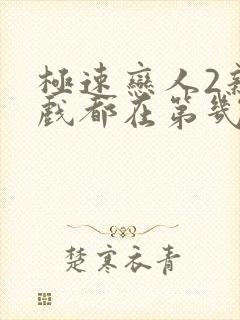 極速戀人2
戲都在第幾
楚寒衣青